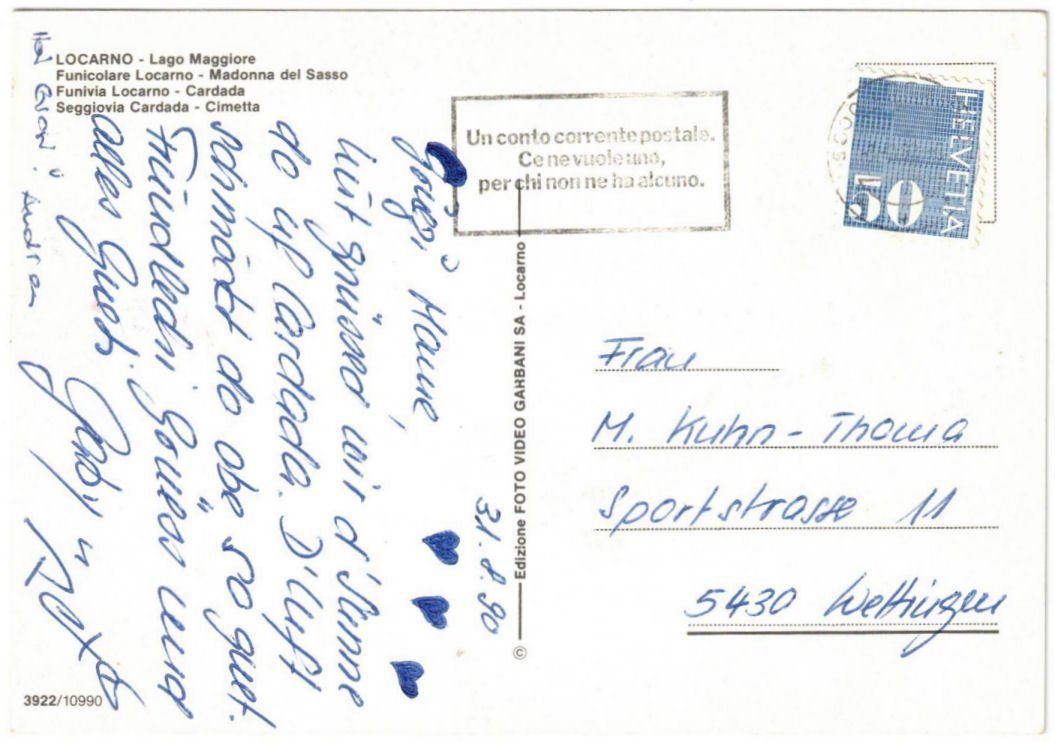 LOCARNO - Lago Maggiore
Funicolare Locarno - Madonna del Sasso
Funivia Locarno - Cardada
Seggiovia Cardada - Cimetta
Un conto corrente postale.
Ce ne vuole uno,
per chi non ne ha alcuno.
HELVETIA
50
31.8.90
wir d'Sunne
do uf Cardada. D'Luft
schmöckt do obe so guet.
Fründlechi und
alles Guet.
Edizione FOTO VIDEO GARBANI SA - Locarno
©
Frau
M. Kuhn-Thoma
Sportstrasse 11
5430 Wettingen
3922/10990